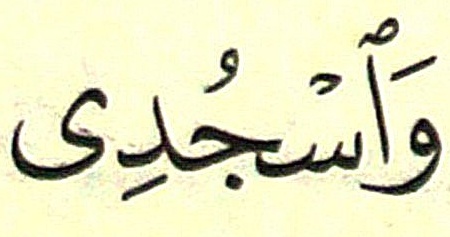 وَٱسْجُدِى